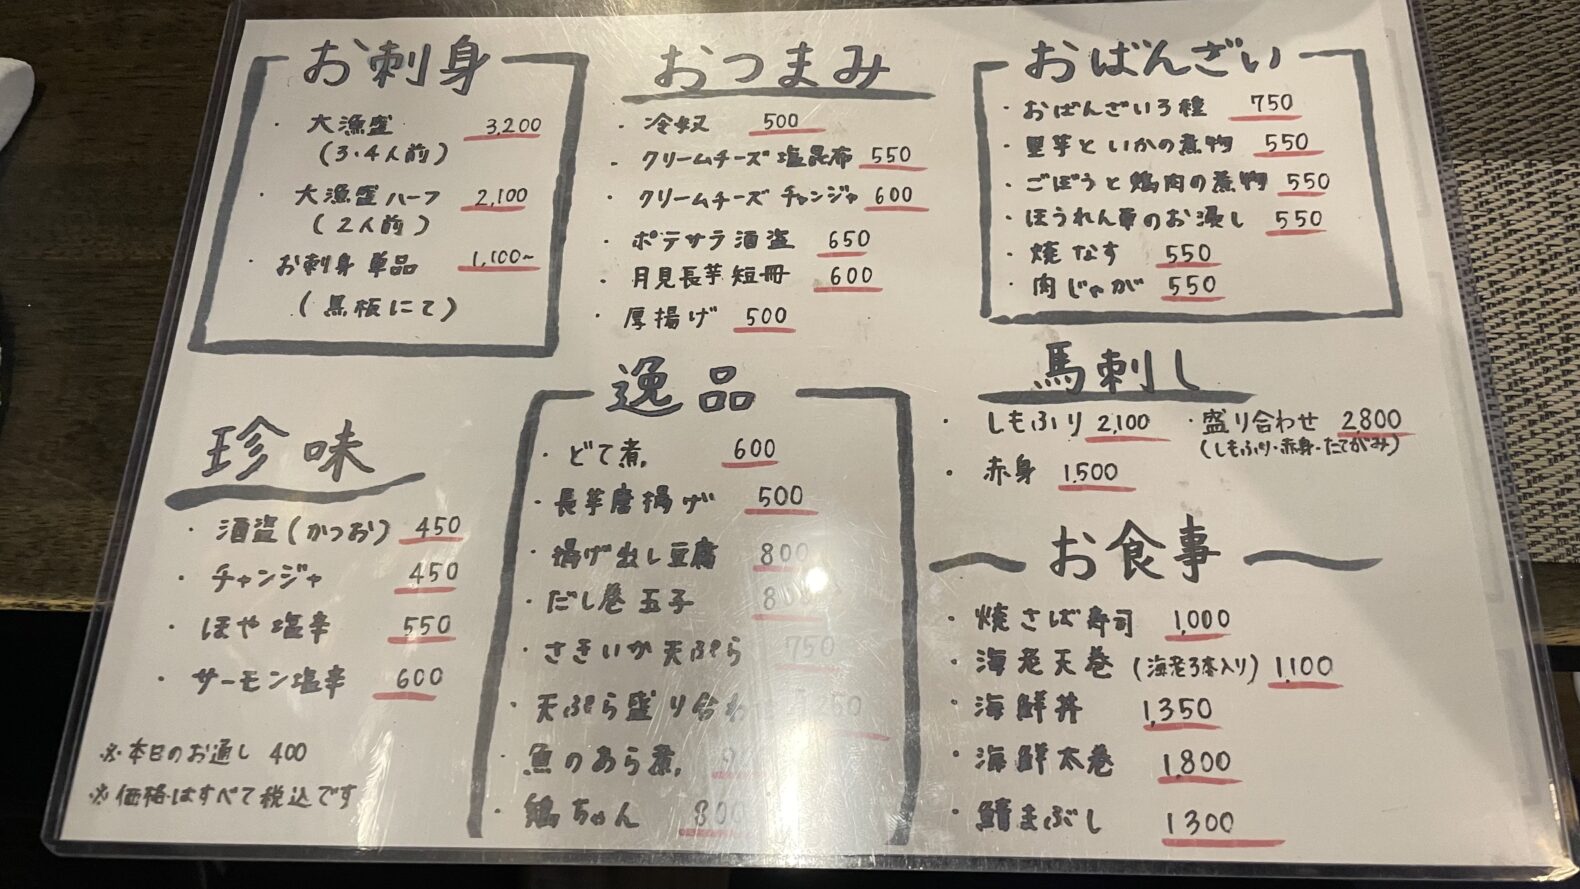 お刺身
・大漁盛 3,200
(3・4人前)
・大漁盛ハーフ 2,100
(2人前)
・お刺身 単品 1,100~
(黒板にて)
おつまみ
・冷奴 500
・クリームチーズ塩昆布 550
・クリームチーズ チャンジャ 600
・ポテサラ酒盗 650
・月見長芋短冊 600
・厚揚げ 500
おばんざい
・おばんざい3種 750
・里芋といかの煮物 550
・ごぼうと鶏肉の煮物 550
・ほうれん草のお浸し 550
・焼なす 550
・肉じゃが 550
珍味
・酒盗(かつお) 450
・チャンジャ 450
・ほや塩辛 550
・サーモン塩辛 600
※本日のお通し 400
※価格はすべて税込です
逸品
・どて煮 600
・長芋唐揚げ 500
・揚げ出し豆腐 800
・だし巻玉子
・さきいか天ぷら 750
・天ぷら盛り合わ
・魚のあら煮
・鶏ちゃん 800
馬刺し
・しもふり 2,100
・盛り合わせ 2,800
(しもふり・赤身・たてがみ)
・赤身 1,500
お食事
・焼さば寿司 1,000
・海老天巻 (海老3本入り) 1,100
・海鮮丼 1,350
・海鮮太巻 1,800
・鯖まぶし 1300